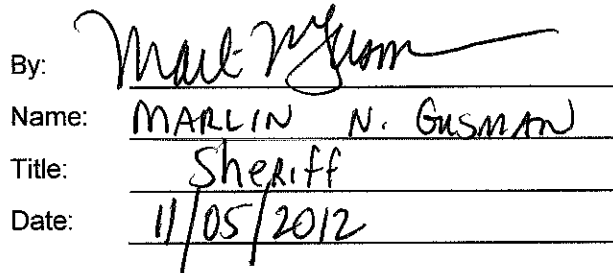 By:
Name: MARLIN N. GUSMAN
Title: Sheriff
Date: 11/05/2012